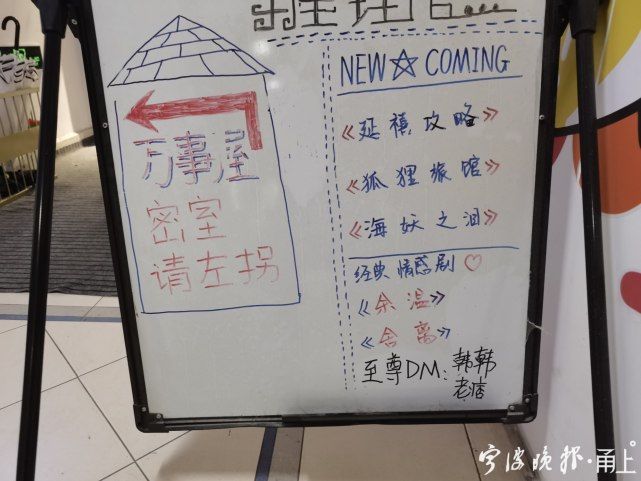 NEW☆COMING
《延禧攻略》
《狐狸旅馆》
《海妖之泪》
经典情感剧♡
《余温》
《舍离》
至尊DM:韩韩
老痞
万事屋
密室
请左拐
宁波晚报·甬上